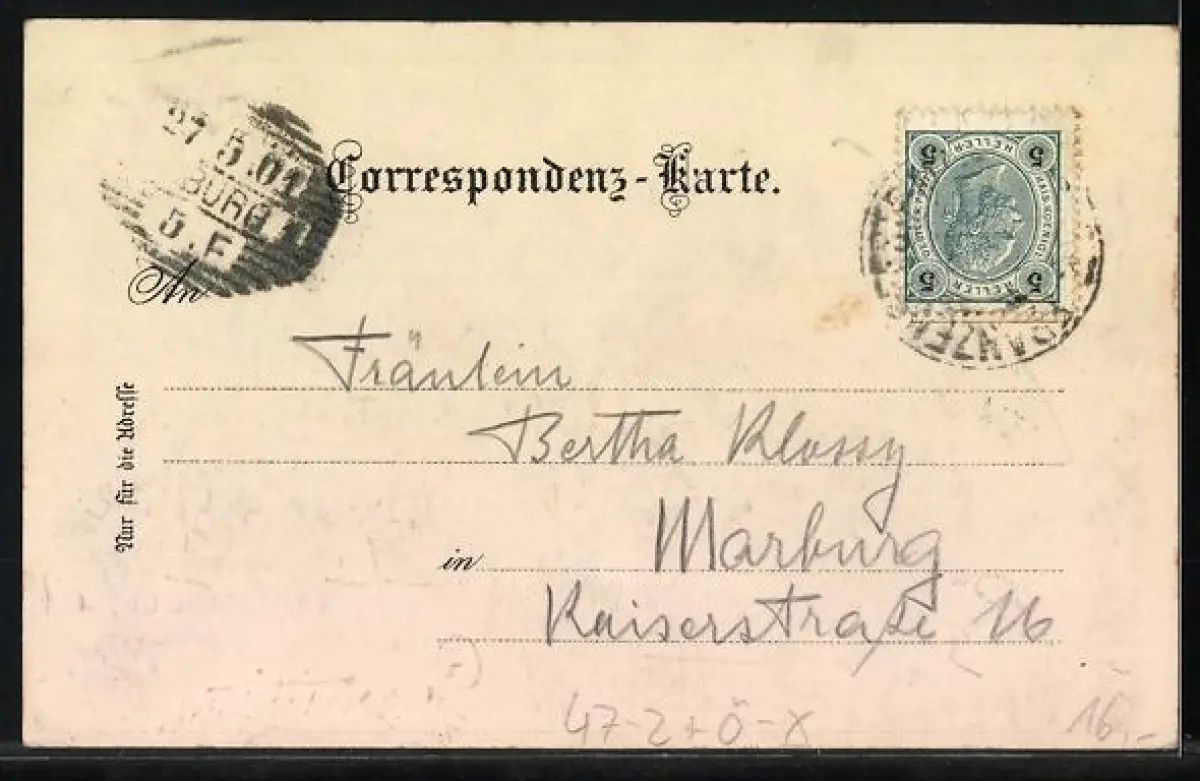 27.5.01
BURG
5.F
Correspondenz-Karte.
5 HELLER 5
5 HELLER 5
An
Fräulein
Bertha Klossy
in Marburg
Kaiserstraße 16
Nur für die Adresse
47-2+Ö-X
16,-